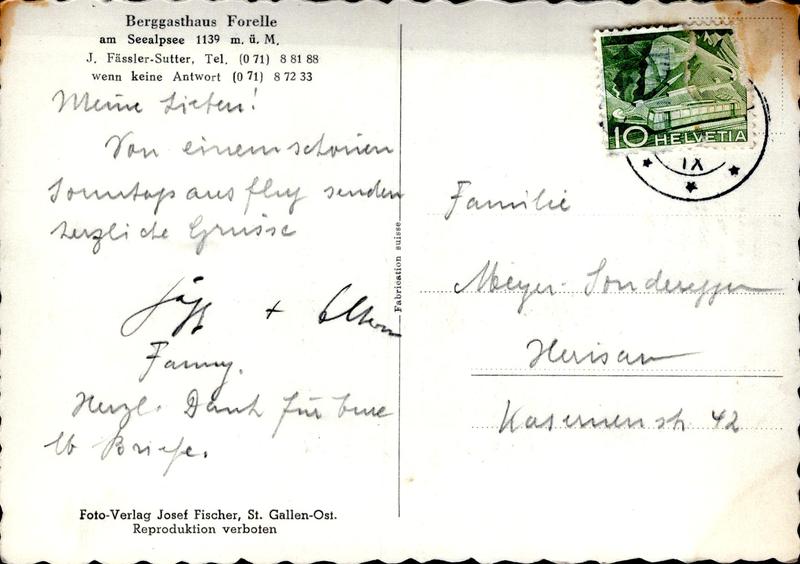 Berggasthaus Forelle
am Seealpsee 1139 m. ü. M.
J. Fässler-Sutter, Tel. (0 71) 8 81 88
wenn keine Antwort (0 71) 8 72 33
Meine Lieben!
Von einem schönen
Sonntagsausflug senden
herzliche Grüsse
+ Eltern
Fanny.
Herzl. Dank für Eure
lb Briefe.
Foto-Verlag Josef Fischer, St. Gallen-Ost.
Reproduktion verboten
Fabrication suisse
10 HELVETIA
IX
Familie
Meyer-Sonderegger
Herisau
Kasernenstr. 42